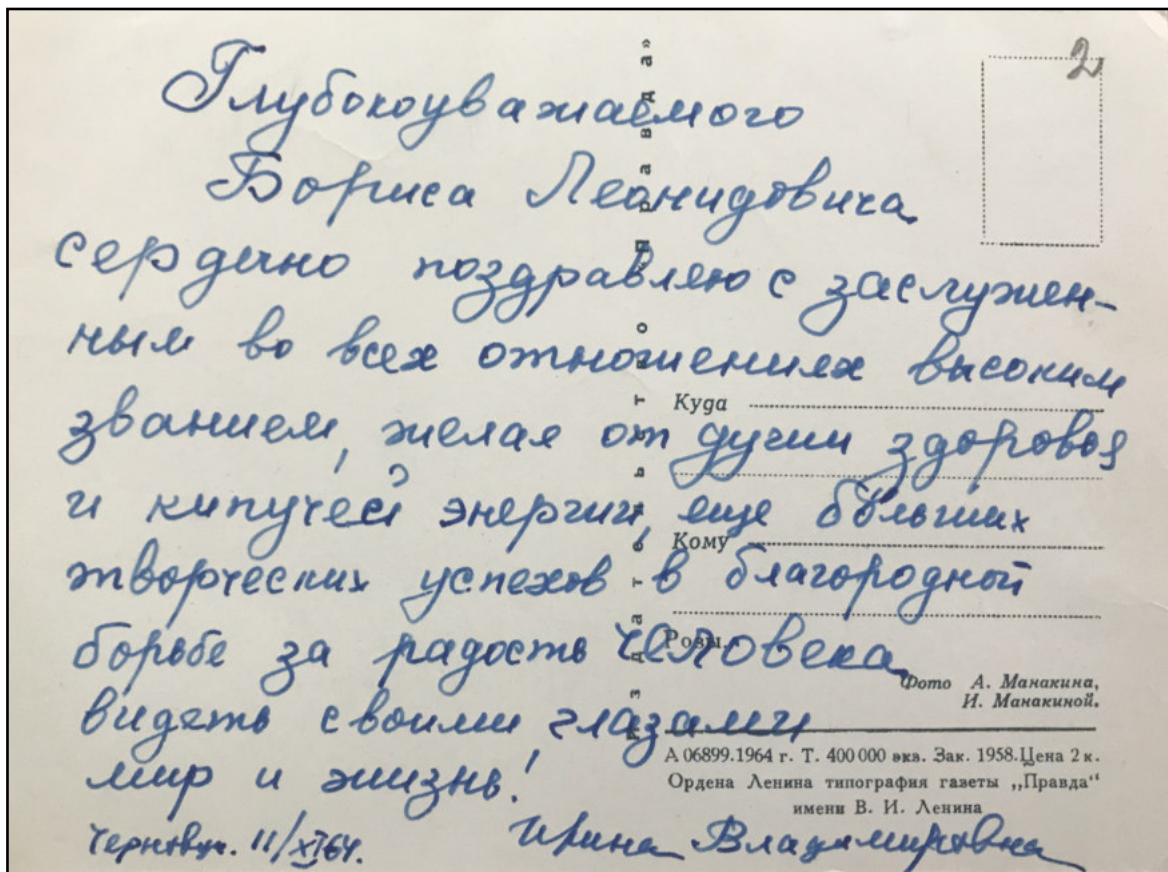 2
Глубокоуважаемого
Бориса Леонидовича
сердечно поздравляю с заслужен-
ным во всех отношениях высоким
званием, желая от души здоровья
и кипучей энергии, еще бо́льших
творческих успехов в благородной
борьбе за радость человека
видеть своими глазами
мир и жизнь!
Черновцы. 11/XI 64.
Ирина Владимировна
Издательство «Правда»
Куда
Кому
Розы.
Фото А. Манакина,
И. Манакиной.
А 06899.1964 г. Т. 400 000 экз. Зак. 1958. Цена 2 к.
Ордена Ленина типография газеты „Правда“
имени В. И. Ленина